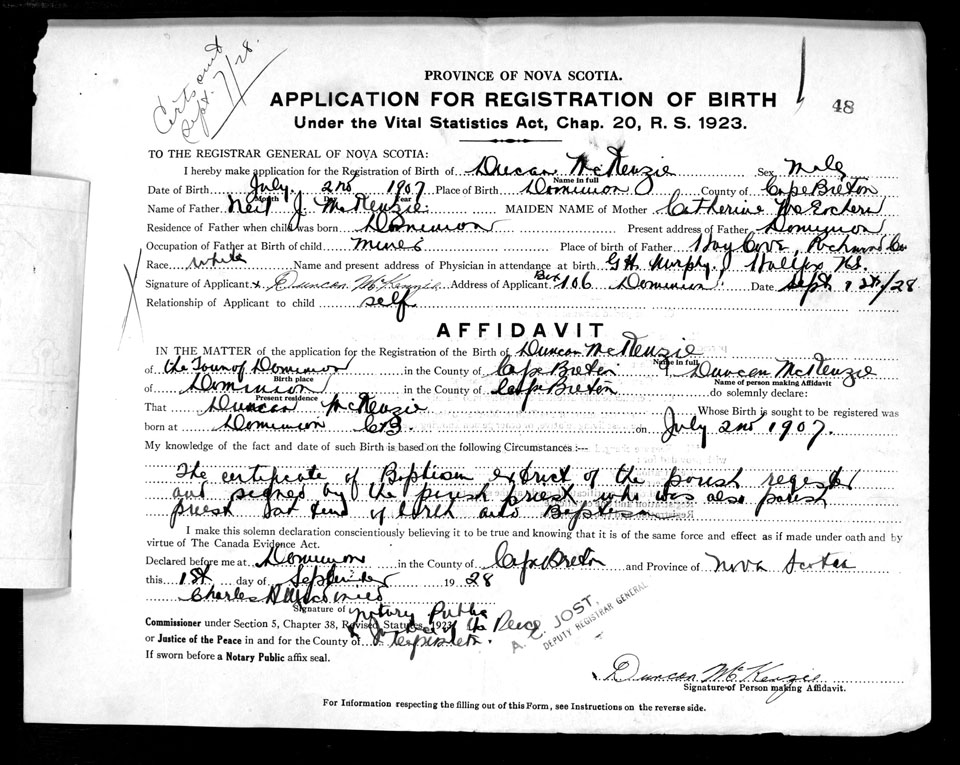 Certs sent
Sept. 7/28.
PROVINCE OF NOVA SCOTIA.
48
APPLICATION FOR REGISTRATION OF BIRTH
Under the Vital Statistics Act, Chap. 20, R. S. 1923.
TO THE REGISTRAR GENERAL OF NOVA SCOTIA:
I hereby make application for Registration of Birth of Duncan McKenzie Sex Male
Name in full
Date of Birth July 2nd 1907 Place of Birth Dominion County of Cape Breton
Month Day Year
Name of Father Neil J. McKenzie MAIDEN NAME of Mother Catherine McEachern
Residence of Father when child was born Dominion Present address of Father Dominion
Occupation of Father at Birth of child miner Place of birth of Father Hay Cove, Richmond Co
Race white Name and present address of Physician in attendance at birth G H Murphy, Halifax N.S.
Signature of Applicant x Duncan McKenzie Address of Applicant Box 106 Dominion Date Sept 1st/28
Relationship of Applicant to child self
AFFIDAVIT
IN THE MATTER of the application for the Registration of the Birth of Duncan McKenzie
Name in full
of the Town of Dominion in the County of Cape Breton I Duncan McKenzie
Birth place Name of person making Affidavit
of Dominion in the County of Cape Breton do solemnly declare:
Present residence
That Duncan McKenzie Whose Birth is sought to be registered was
born at Dominion C.B. on July 2nd 1907.
My knowledge of the fact and date of such Birth is based on the following Circumstances :--
The certificate of Baptism extract of the parish register
and signed by the parish priest who was also parish
priest at time of birth and Baptism
I make this solemn declaration conscientiously believing it to be true and knowing that it is of the same force and effect as if made under oath and by
virtue of The Canada Evidence Act.
Declared before me at Dominion in the County of Cape Breton and Province of Nova Scotia
this 1st day of September 1928
Charles
Signature of Notary Public
Commissioner under Section 5, Chapter 38, Revised Statutes, 1923 of the Peace
or Justice of the Peace in and for the County of Cape Breton.
If sworn before a Notary Public affix seal.
A. C. JOST,
DEPUTY REGISTRAR GENERAL
Duncan McKenzie
Signature of Person making Affidavit.
For Information respecting the filling out of this Form, see Instructions on the reverse side.